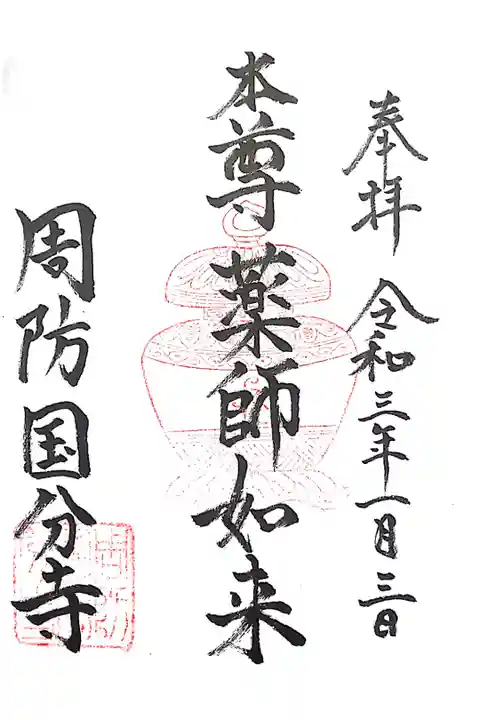 奉拝 令和三年一月三日
本尊薬師如来
周防国分寺